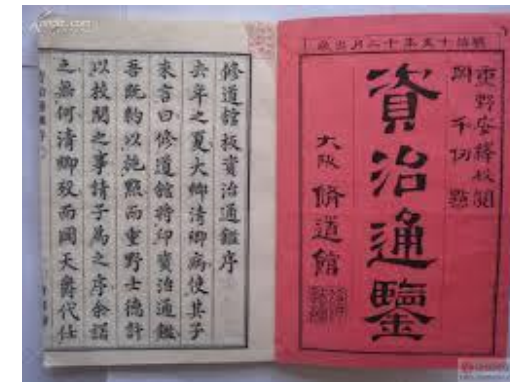 明治十五年十二月出版
重野安繹校閲
岡千仞點
資治通鑒
大阪 脩道館
修道館板資治通鑑序
去年之夏大卿清卿病使其子
來言曰修道館将印資治通鑑
吾既約以施點而重野士德計
以校閲之事請子為之序余諾
之無何清卿歿而岡天爵代仕